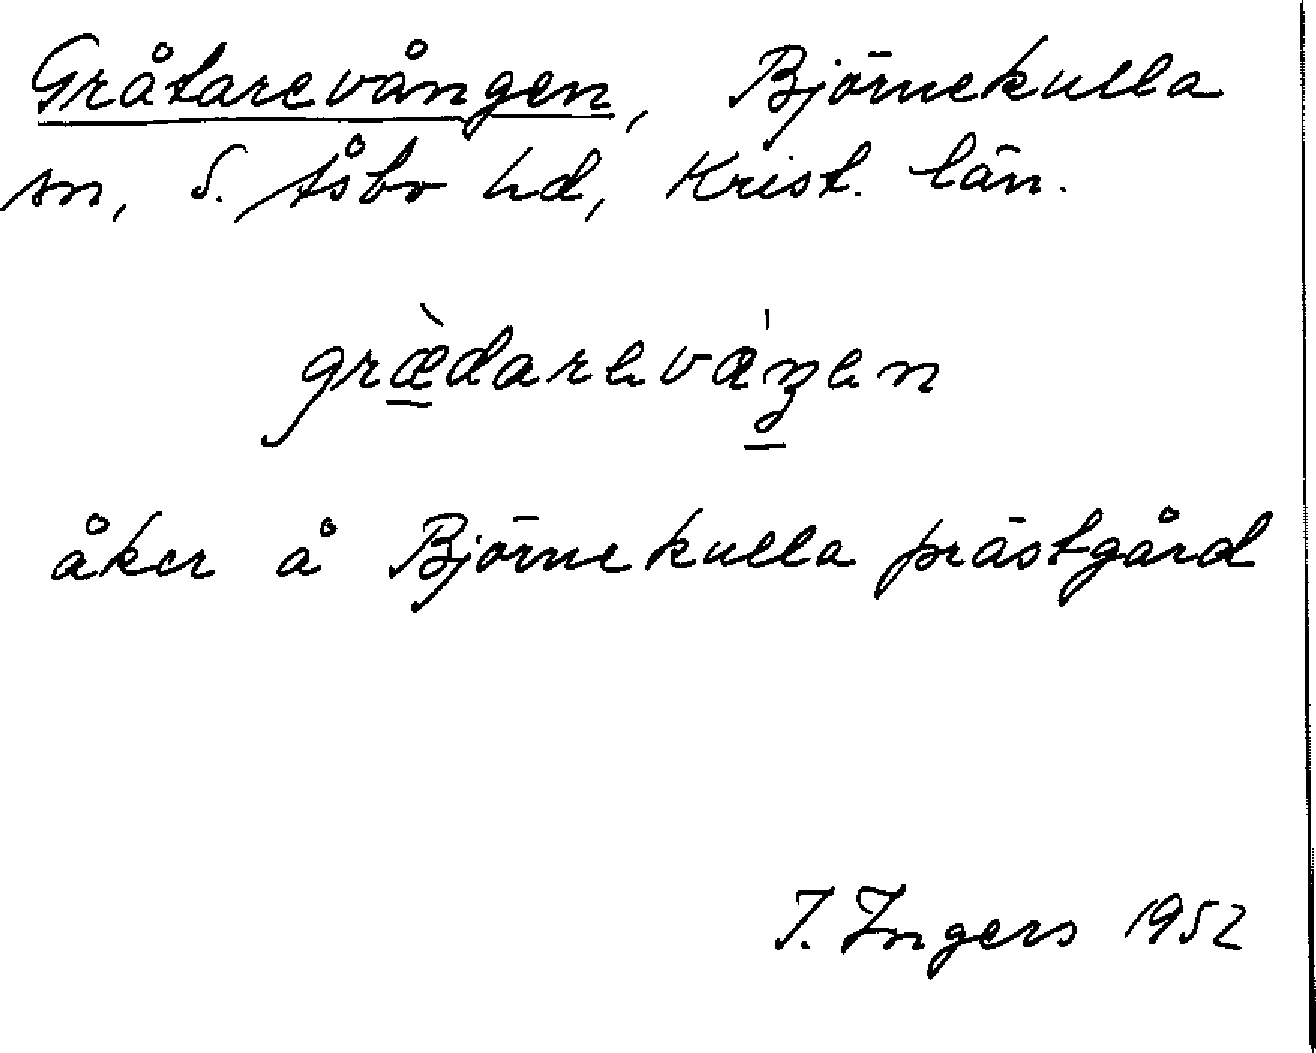 Gråtarevången, Björnekulla
sn, S. Åsbo hd, Krist. län.
grædarevaŋen
åker å Björnekulla prästgård
I. Ingers 1952